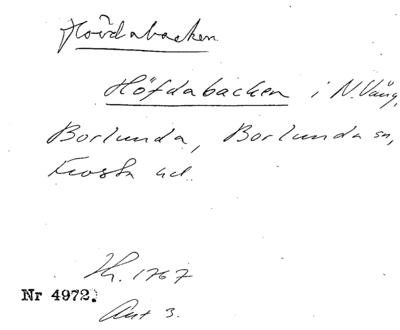 Hövdabacken
Höfdabacken i N. Vång,
Borlunda, Borlunda sn,
Frosta hd.
Lh. 1767
Nr 4972.
Akt 3.